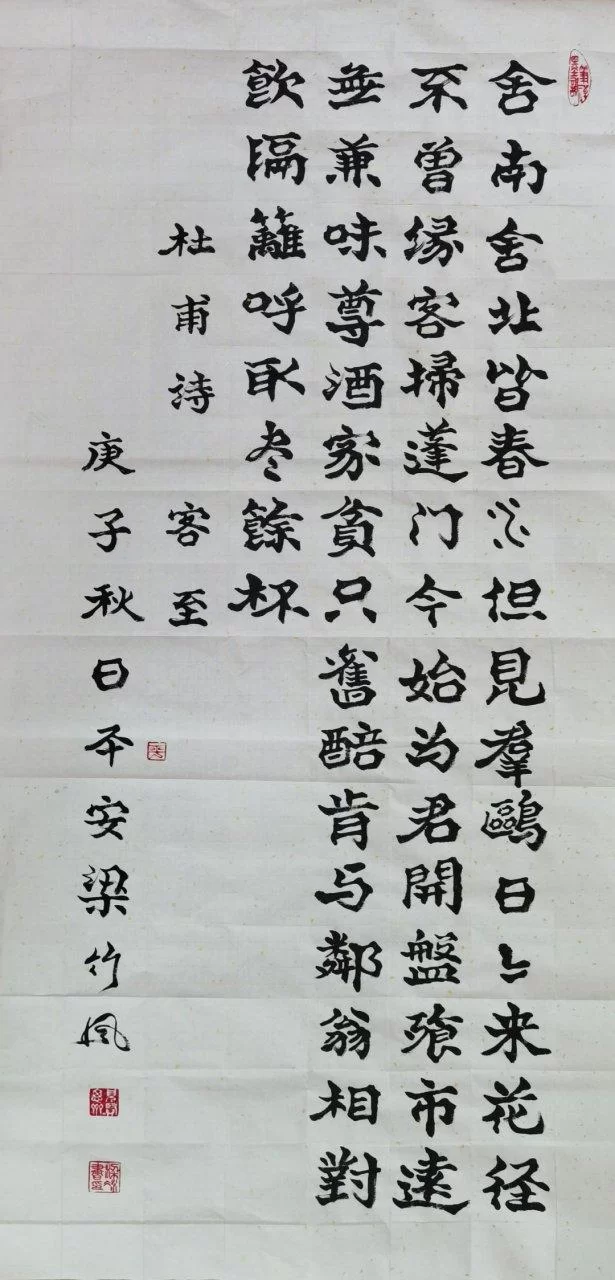 舍南舍北皆春水但見羣鷗日々来花径
不曾缘客掃蓬门今始为君開盤飱市遠
無兼味尊酒家貧只舊醅肯与鄰翁相對
飲隔籬呼取尽餘杯
杜甫诗 客至
庚子秋日本安梁竹风